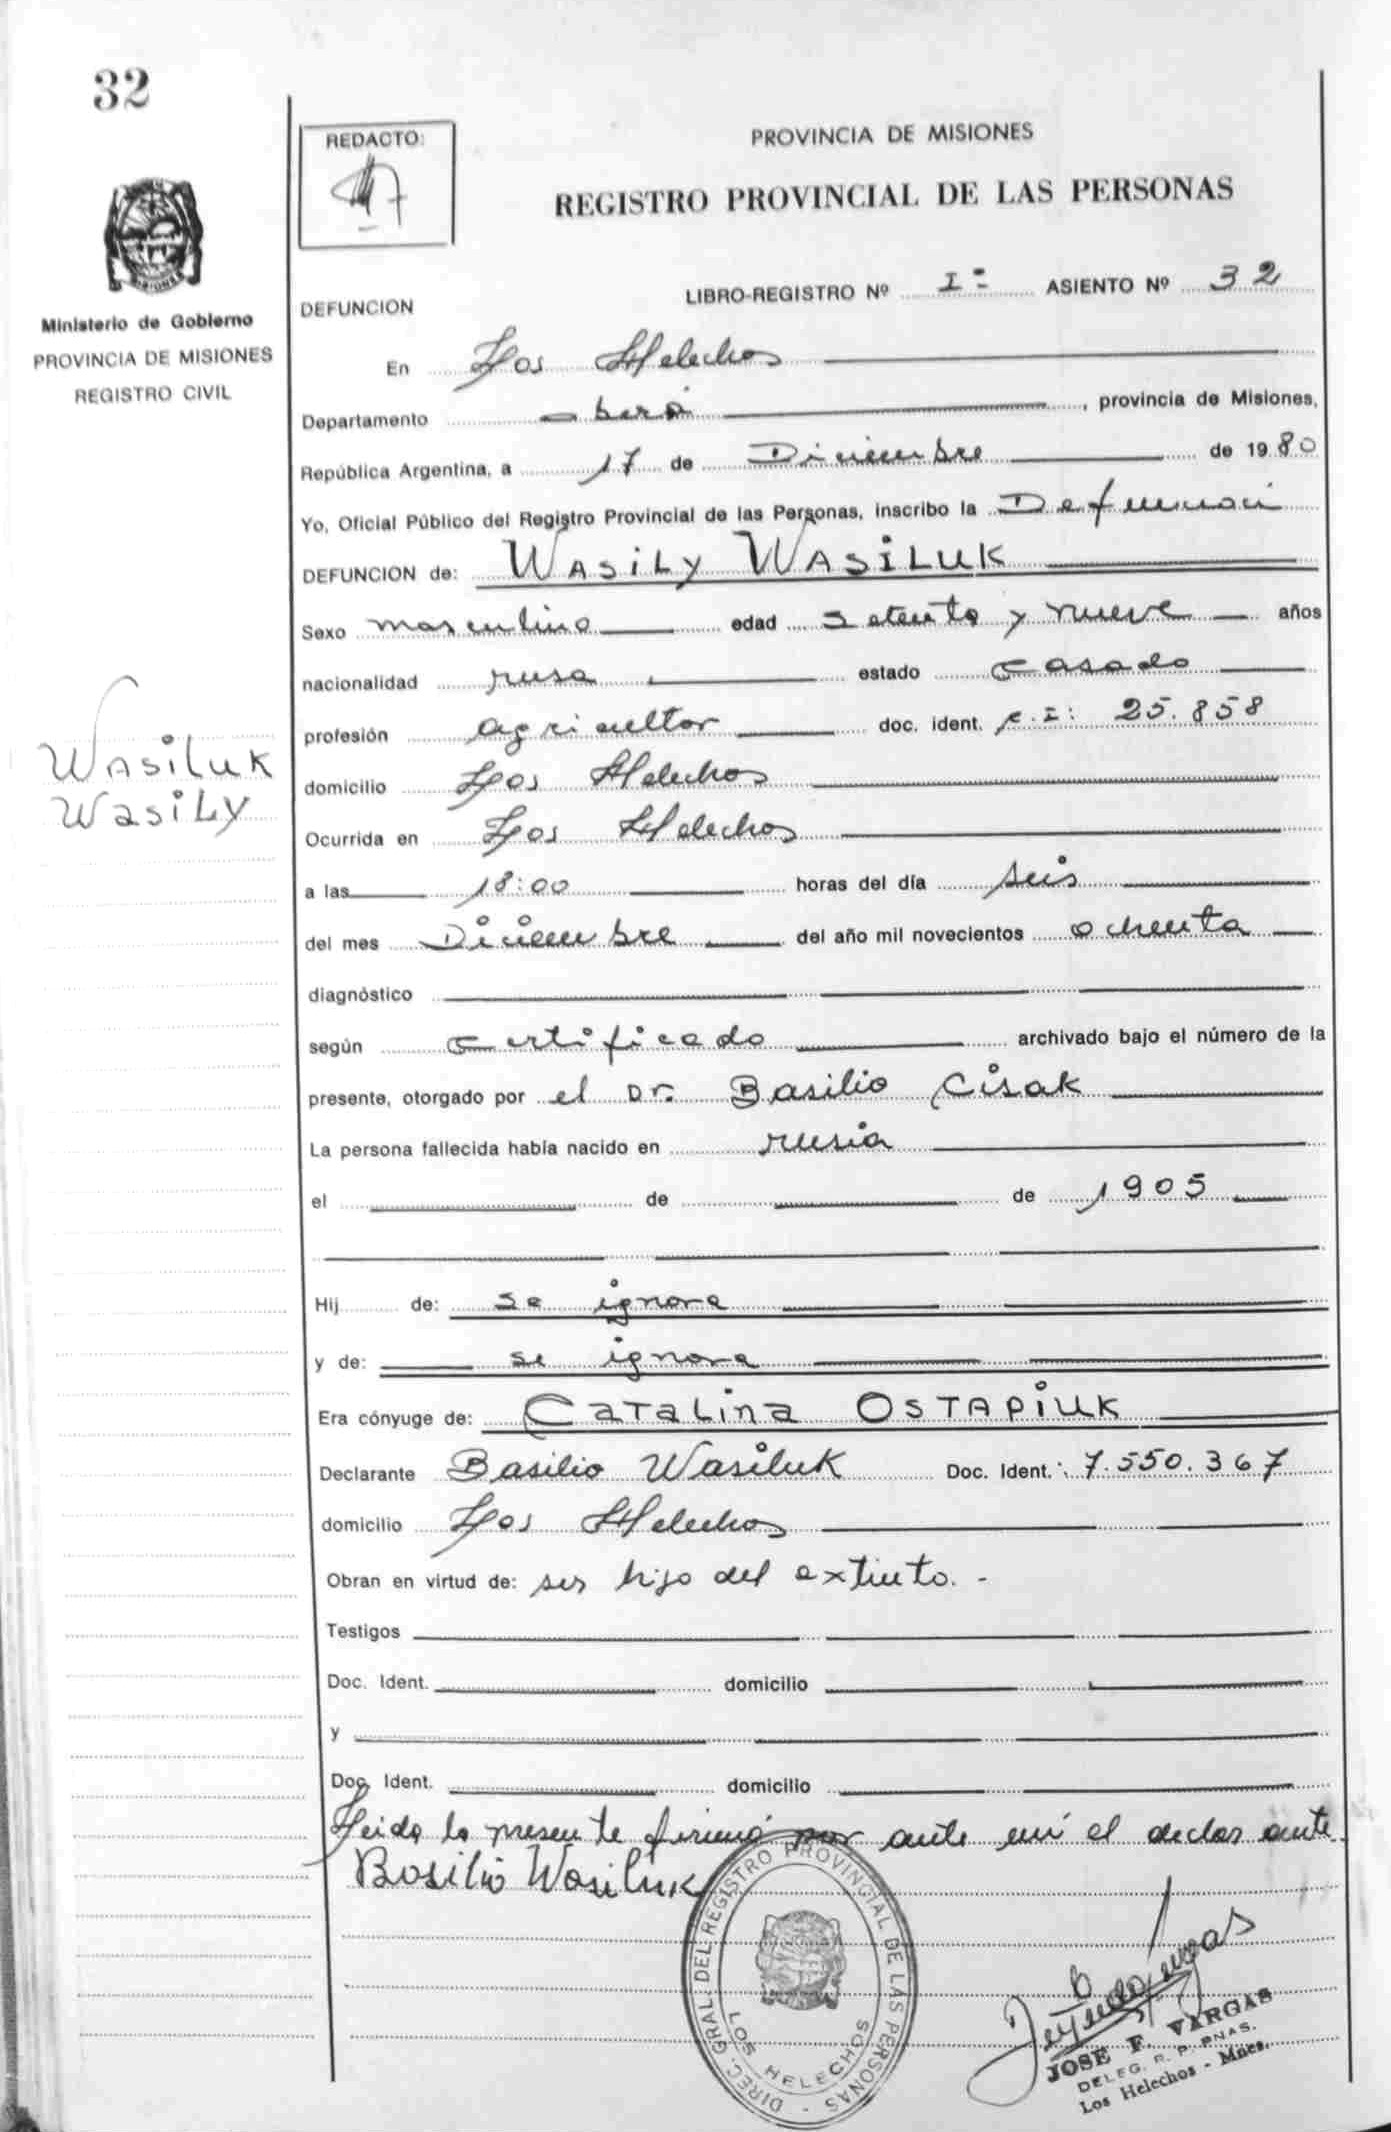 32
REDACTO:
PROVINCIA DE MISIONES
REGISTRO PROVINCIAL DE LAS PERSONAS
MISIONES
Ministerio de Gobierno
PROVINCIA DE MISIONES
REGISTRO CIVIL
DEFUNCION
LIBRO-REGISTRO Nº Iº ASIENTO Nº 32
En Los Helechos
Departamento Oberá, provincia de Misiones,
República Argentina, a 17 de Diciembre de 1980
Yo, Oficial Público del Registro Provincial de las Personas, inscribo la Defunción
DEFUNCION de: WASiLY WASiLUK
Sexo masculino edad setenta y nueve años
nacionalidad rusa estado casado
profesión agricultor doc. ident. C.I: 25.858
Wasiluk
WasiLy
domicilio Los Helechos
Ocurrida en Los Helechos
a las 18:00 horas del día seis
del mes Diciembre del año mil novecientos ochenta
diagnóstico
según certificado archivado bajo el número de la
presente, otorgado por el Dr. Basilio Cisak
La persona fallecida había nacido en rusia
el de de 1905
Hij de: se ignora
y de: se ignora
Era cónyuge de: CATALina OSTAPiUK
Declarante Basilio Wasiluk Doc. Ident. 7.550.367
domicilio Los Helechos
Obran en virtud de: ser hijo del extinto.-
Testigos
Doc. Ident. domicilio
y
Doc. Ident. domicilio
Leida la presente firmó por ante mí el declarante
Basilio Wasiluk
DIREC. GRAL. DEL REGISTRO PROVINCIAL DE LAS PERSONAS -
LOS HELECHOS
JOSE F. VARGAS
DELEG. R. P. PNAS.
Los Helechos - Mnes.